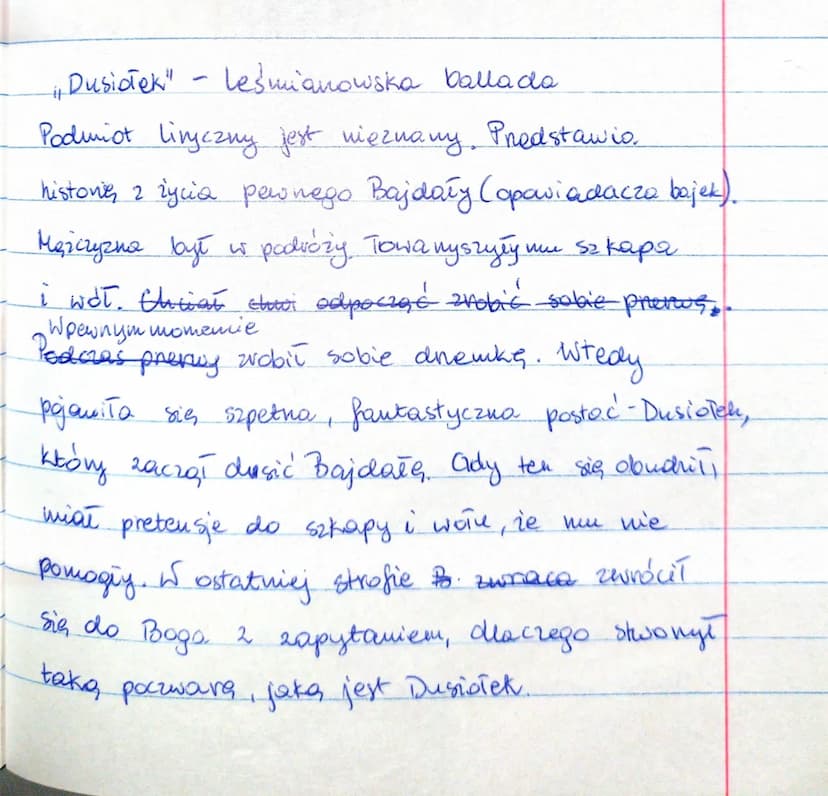 „Dusiołek" - leśmianowska ballada
Podmiot liryczny jest nieznany. Przedstawia
historię z życia pewnego Bajdały (opowiadacza bajek).
Mężczyzna był w podróży. Towarzyszyły mu szkapa
i wół. Chciał chwi odpocząć zrobić sobie przerwę.
W pewnym momencie
Podczas przerwy zrobił sobie drzemkę. Wtedy
pojawiła się szpetna, fantastyczna postać - Dusiołek,
który zaczął dusić Bajdałę. Gdy ten się obudził,
miał pretensje do szkapy i wołu, że mu nie
pomogły. W ostatniej strofie B. zwraca zwrócił
się do Boga z zapytaniem, dlaczego stworzył
taką poczwarę, jaką jest Dusiołek.